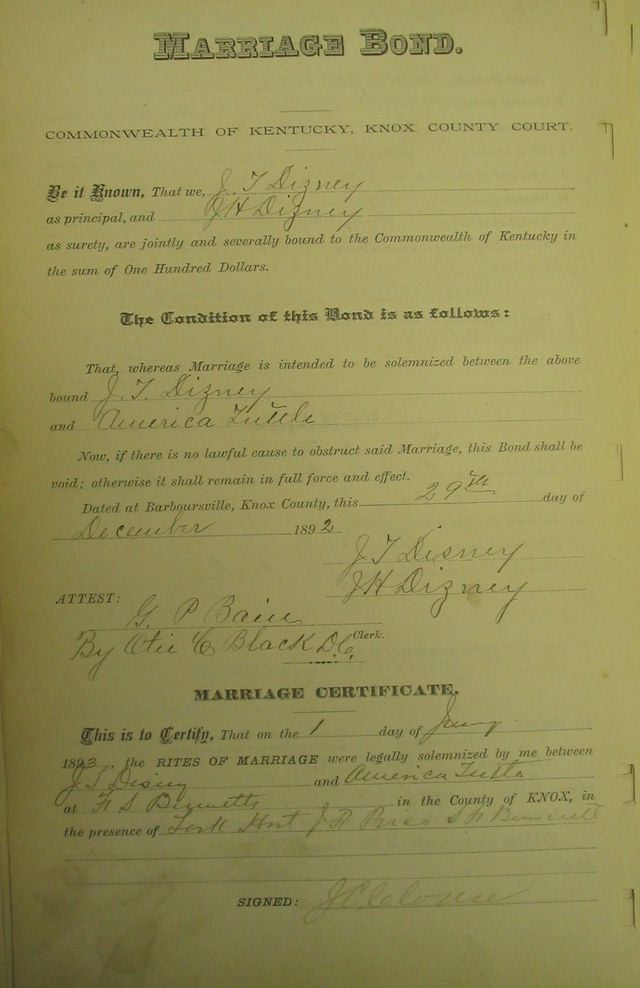 MARRIAGE BOND.
COMMONWEALTH OF KENTUCKY, KNOX COUNTY COURT.
Be it Known, That we, J. T Dizney
as principal, and JH Dizney
as surety, are jointly and severally bound to the Commonwealth of Kentucky in
the sum of One Hundred Dollars.
The Condition of this Bond is as follows:
That, whereas Marriage is intended to be solemnized between the above
bound J. T. Dizney
and America Tuttle
Now, if there is no lawful cause to obstruct said Marriage, this Bond shall be
void; otherwise it shall remain in full force and effect.
Dated at Barboursville, Knox County, this 29th day of
December 1892
J T Disney
JH Dizney
ATTEST:
G. P Bain
Clerk.
By Otie C Black D.C.
MARRIAGE CERTIFICATE.
This is to Certify, That on the 1 day of
1893, the RITES OF MARRIAGE were legally solemnized by me between
J T Disney and America Tuttle
at in the County of KNOX, in
the presence of
SIGNED: